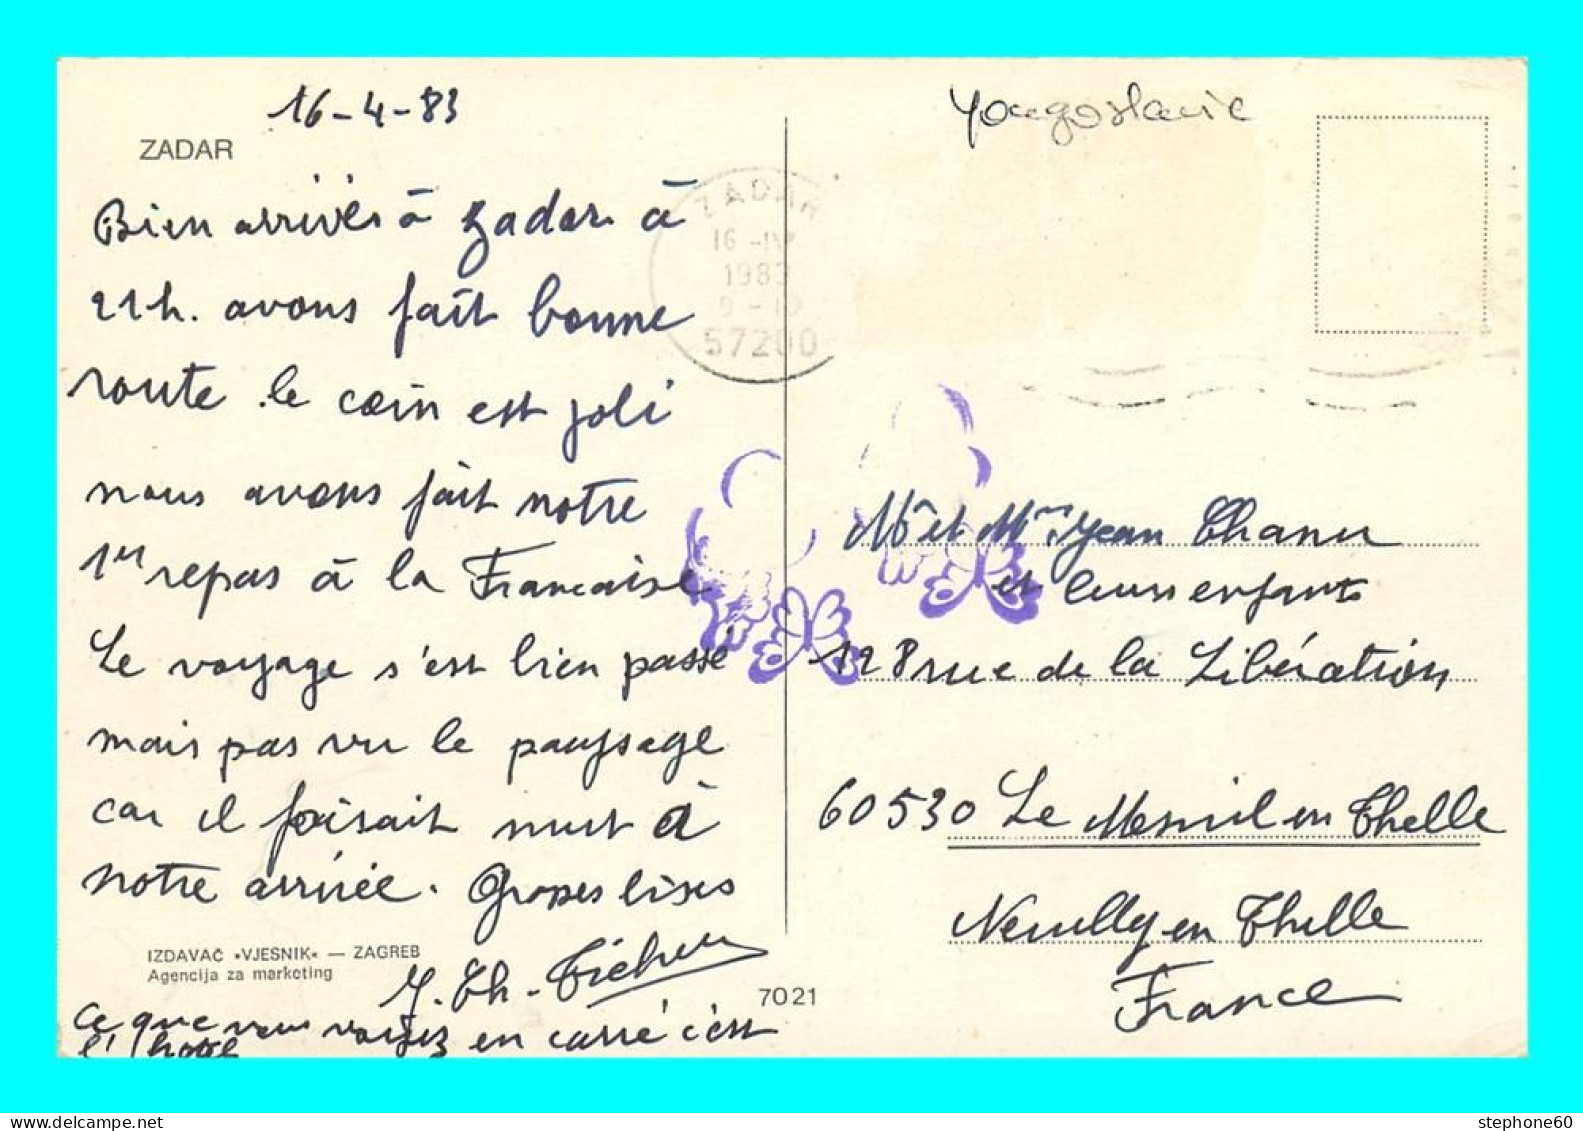 16-4-83
Yougoslavie
ZADAR
ZADAR
16-IV
1983
9-10
57200
Bien arrivés à Zadar à
21h. avons fait bonne
route le coin est joli
nous avons fait notre
1er repas à la Francaise
Le voyage s'est bien passé
mais pas vu le paysage
car il faisait nuit à
notre arrivée. Grosses bises
IZDAVAČ •VJESNIK• — ZAGREB
Agencija za marketing
7021
Ce que vous voyez en carré c'est
l'hotel
Mr et Mme Jean
et leurs enfants
128 rue de la Libération
60530 Le Mesnil en Thelle
Neuilly en Thelle
France
stephone60